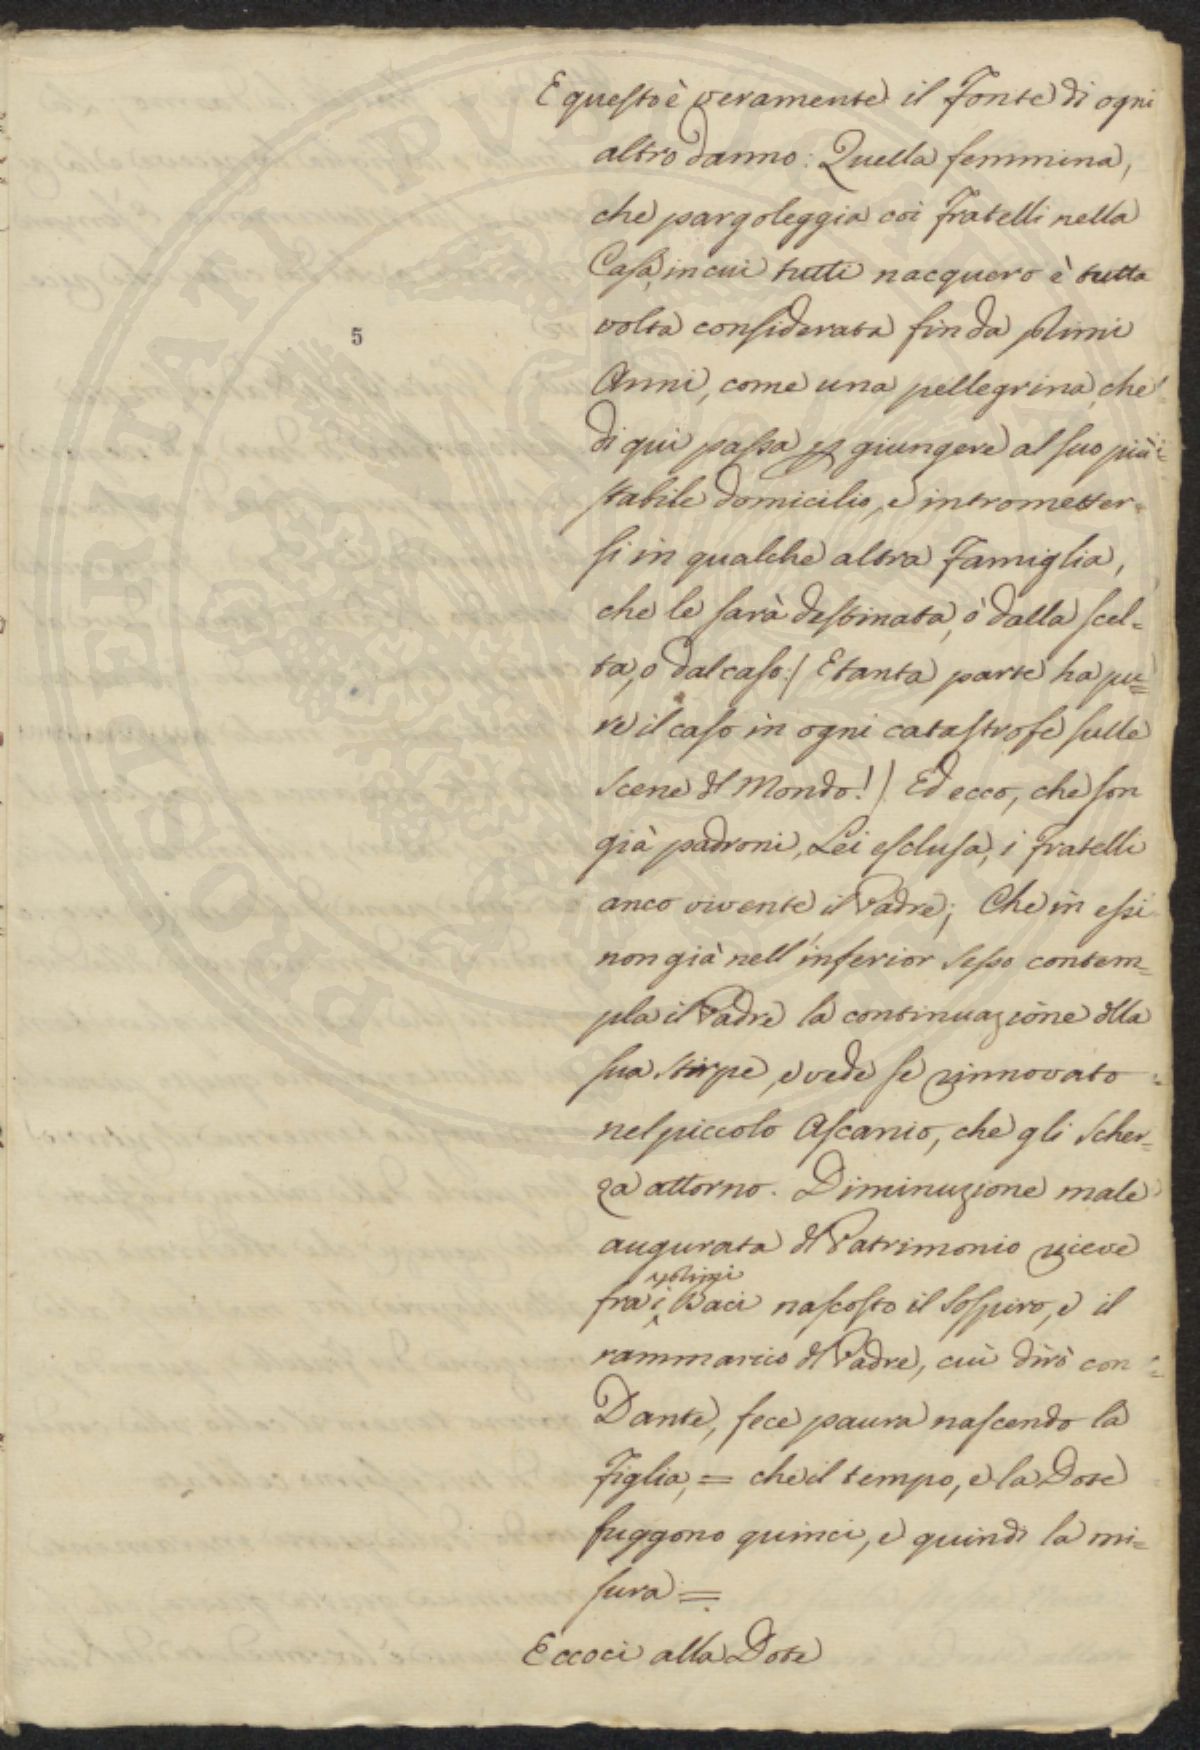 E questo è veramente il Fonte di ogni
altro danno: Quella femmina,
che pargoleggia coi Fratelli nella
Casa, in cui tutti nacquero è tutta
volta considerata fin da primi
Anni, come una pellegrina, che
di qui passa per giungere al suo più
stabile domicilio, e intrometter=
si in qualche altra Famiglia,
che le sarà destinata, ò dalla scel=
ta, o dal caso:/ E tanta parte ha pu=
re il caso in ogni catastrofe sulle
Scene del Mondo!/ Ed ecco, che son
già padroni, Lei esclusa, i Fratelli
anco vivente il Padre; Che in essi
non già nell'inferior sesso contem=
pla il Padre la continuazione della
sua stirpe, e vede se rinnovato
nel piccolo Ascanio, che gli Scher=
za attorno. Diminuzione male
augurata del Patrimonio riceve
fra i primi Baci nascosto il Sospiro, e il
rammarico del Padre, cui dirò con
Dante, fece paura nascendo la
Figlia, = che il tempo, e la Dote
fuggono quinci, e quindi la mi=
sura =
Eccoci alla Dote
5
PROSPERITATI PVBLICAE